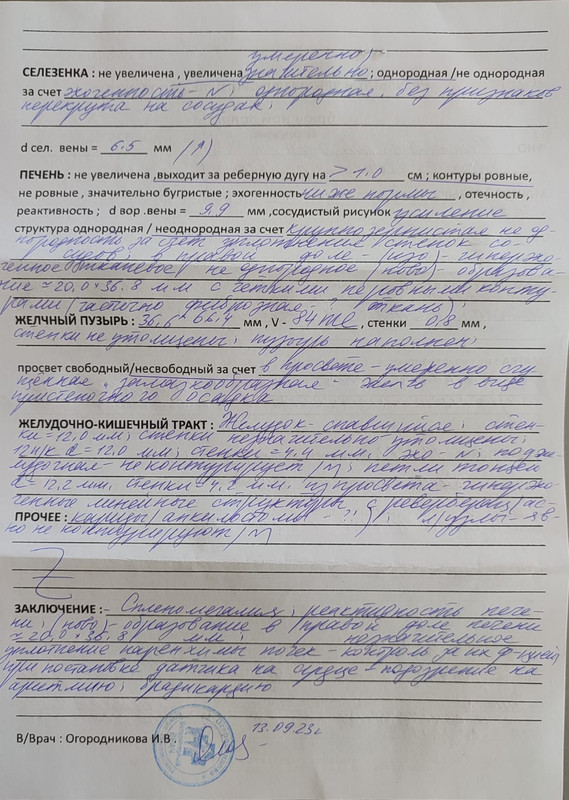 умеренно,
СЕЛЕЗЕНКА : не увеличена , увеличена значительно ; однородная /не однородная
за счет эхогенность - N; однородная, без признаков
перекрута на сосудах;
d сел. вены = 6.5 мм (↑)
ПЕЧЕНЬ : не увеличена ,выходит за реберную дугу на > 1.0 см ; контуры ровные,
не ровные , значительно бугристые ; эхогенность ниже нормы , отечность ,
реактивность ; d вор .вены = 9.9 мм ,сосудистый рисунок усиление
структура однородная / неоднородная за счет крупнозернистая не од-
нородность за счет уплотнения стенок со-
судов; в правой доле - (изо)- гиперэхо-
генное тканевое, не однородное (ново)- образова-
ние ≈ 20,0 × 36.8 мм с четкими неровными конту-
рами (частично фиброзная - ? ткань);
ЖЕЛЧНЫЙ ПУЗЫРЬ : 36,6 × 66.4 мм , V - 84 ml , стенки 0,8 мм ,
стенки не утолщены; пузырь наполнен;
просвет свободный/несвободный за счет в просвете - умеренно сгу-
щенная, "замазкообразная" желчь в виде
пристеночного осадка
ЖЕЛУДОЧНО-КИШЕЧНЫЙ ТРАКТ : Желудок - спавшийся; стен-
ки = 12,0 мм; стенки незначительно утолщены;
12п/к d = 12.0 мм; стенки = 4.4 мм, эхо - N; подже-
лудочная - не контурирует (N); петли тонкой
d = 12,2 мм, стенки 4,2 мм, из просвета - гиперэхо-
генные линейные структуры с ревербер
ПРОЧЕЕ : л/узлы - яв-
но не контурируют (N)
ЗАКЛЮЧЕНИЕ : - Спленомегалия; реактивность пече-
ни; (ново)- образование в правой доле печени
≈ 20,0 × 36.8 мм; незначительное
уплотнение паренхимы почек - контроль за их ф-цией;
при постановке датчика на сердце - подозрение на
аритмию; брадикардию
13.09.23г
В/Врач : Огородникова И.В .